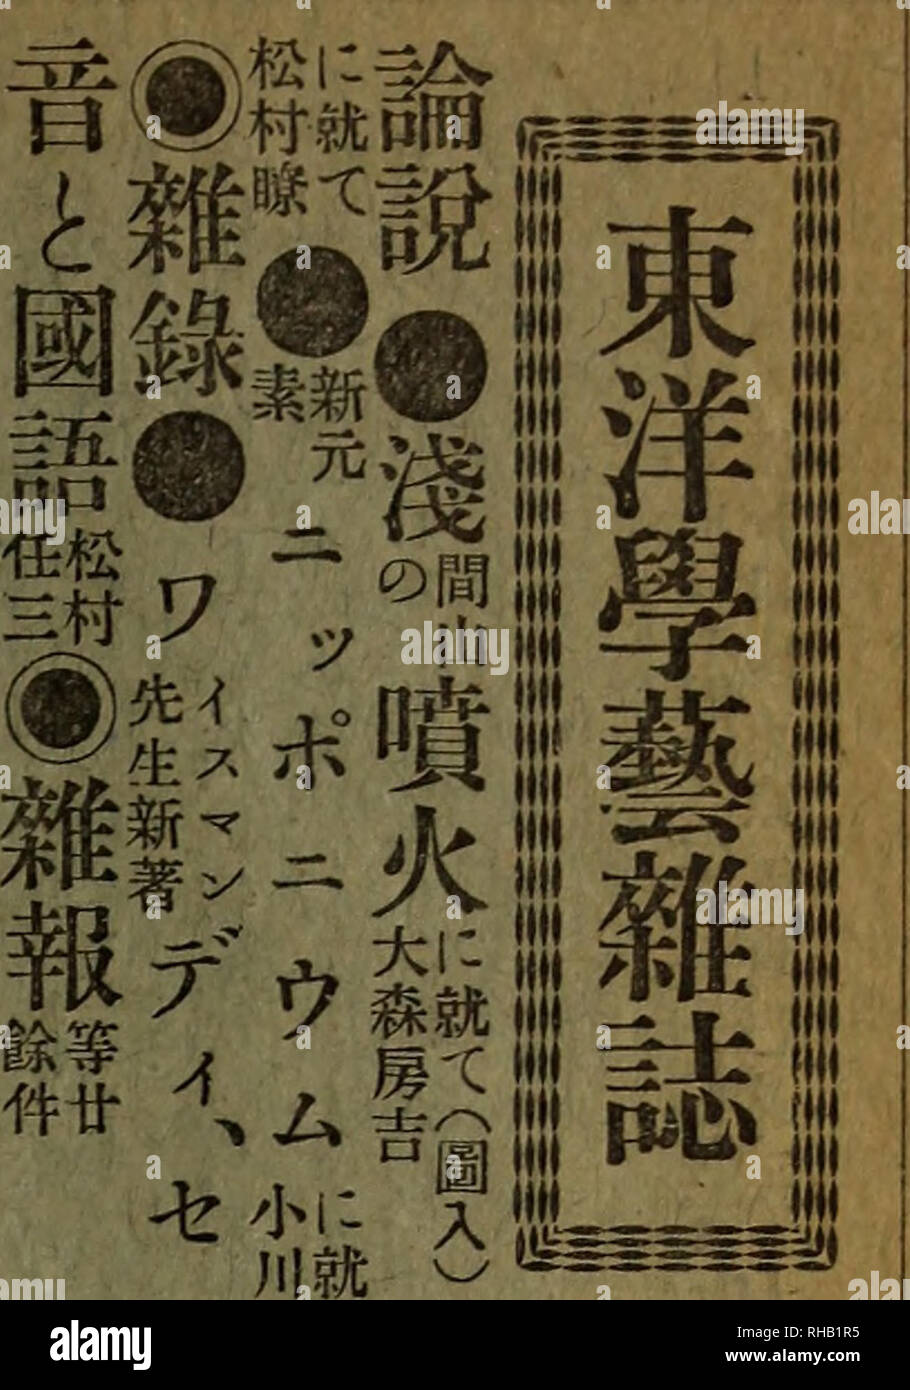 東洋學藝雜誌
論說●淺間山の噴火に就て(圖入)大森房吉
に就て松村瞭●新元素ニッポニウムに就小川
◎雜錄●ワイスマン先生新著ディ、セ
音と國語松村任三◎雜報等廿餘件
alamy
Image ID: RHB1R5
www.alamy.com